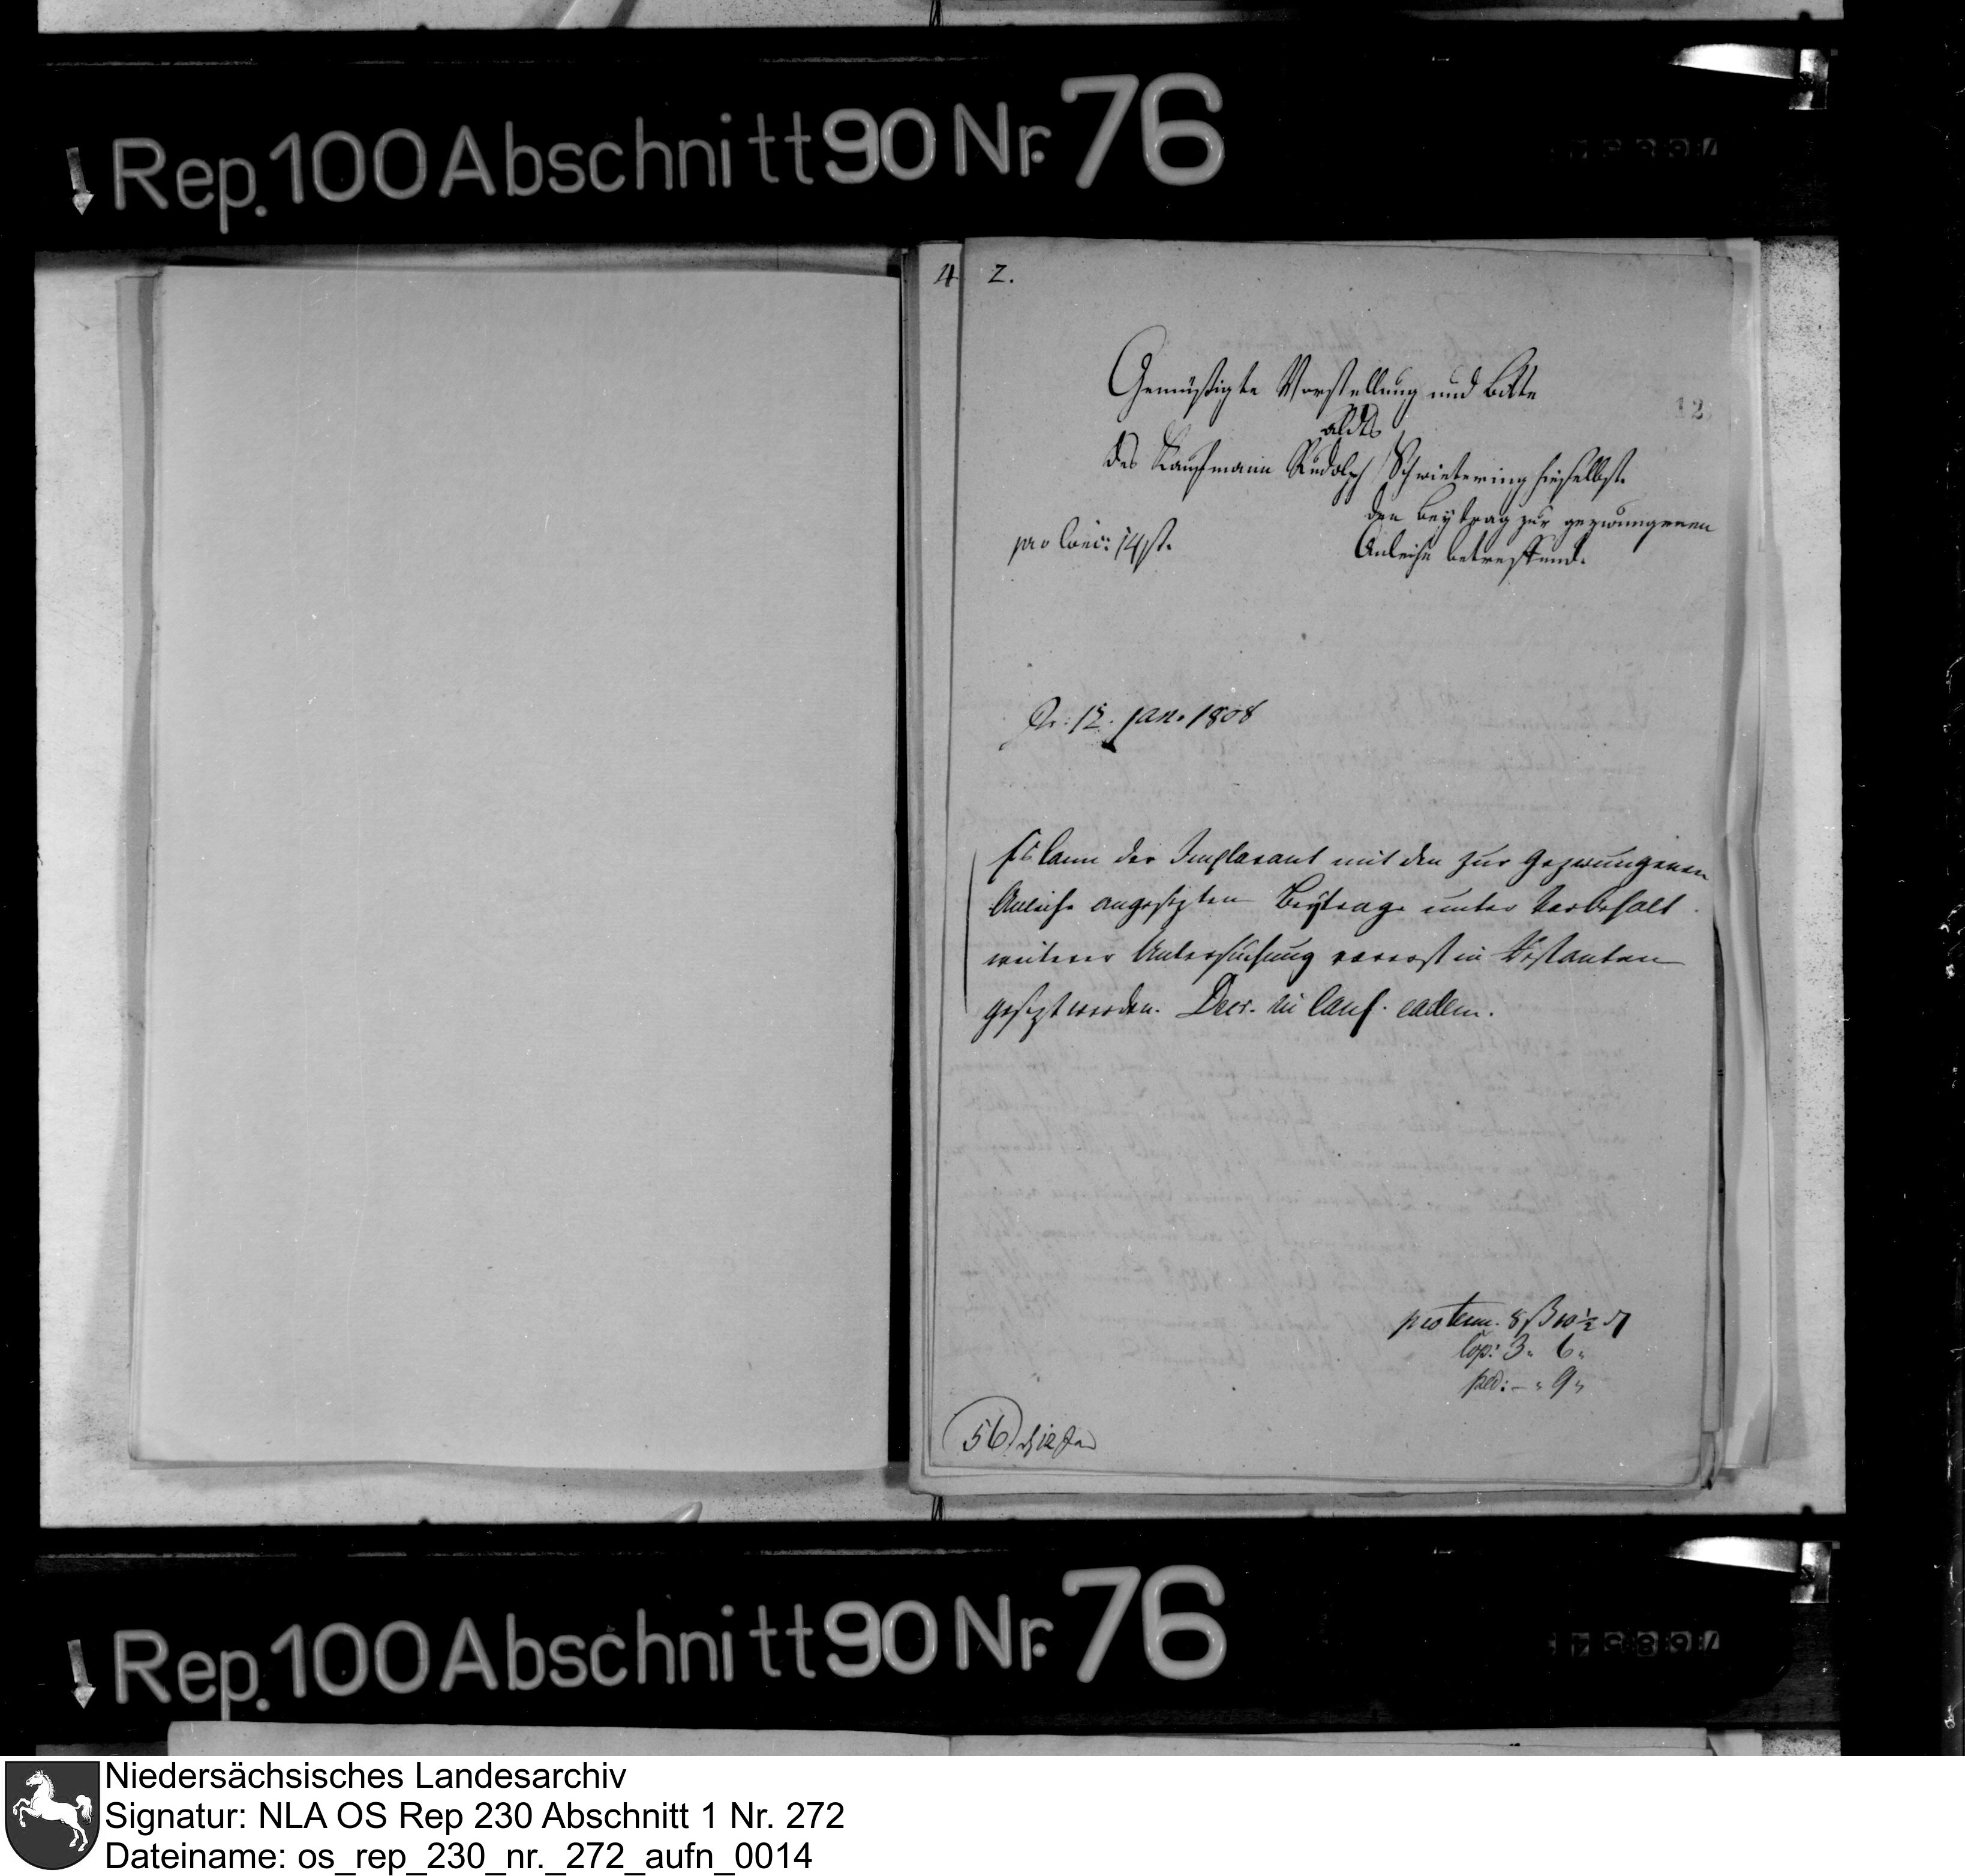 Rep. 100 Abschnitt 90 Nr. 76
4 2.
Gemüßigte Vorstellung und Bitte
12
des Kaufmann Rudolph Schwietering hieselbst.
den Beytrag zur gezwungenen
Anleihe betreffend.
pro
12. Jan. 1808
Es kann der Implorant mit den zur gezwungenen
Anleihe angesezten Beytrage unter Vorbehalt
weiterer Untersuchung vorerst in Restanten
gesezt werden. Decr. in Canc. eadem.
pro term. 8 ß 10 1/2 d
Cop: 3 " 6 "
ped: – " 9 "
56
Rep. 100 Abschnitt 90 Nr. 76
Niedersächsisches Landesarchiv
Signatur: NLA OS Rep 230 Abschnitt 1 Nr. 272
Dateiname: os_rep_230_nr._272_aufn_0014